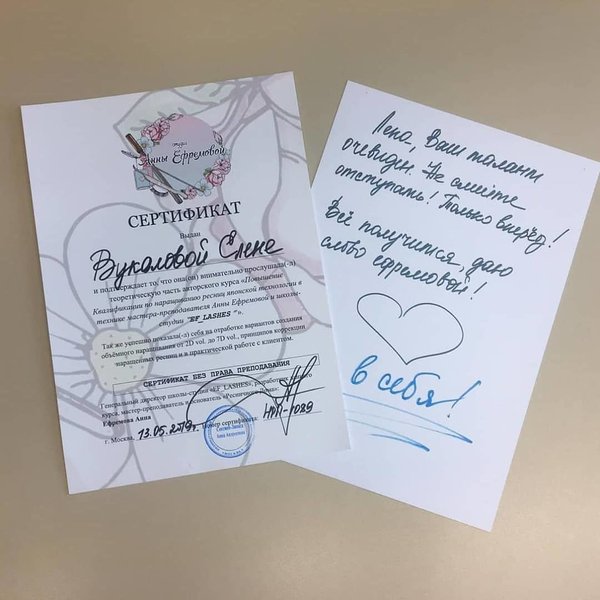 студия
Анны Ефремовой
СЕРТИФИКАТ
Выдан
Вукаловой Елене
и подтверждает то, что она(он) внимательно прослушала(-л)
теоретическую часть авторского курса «Повышение
Квалификации по наращиванию ресниц японской технологии в
технике мастера-преподавателя Анны Ефремовой и школы-
студии "EF_LASHES"».
Так же успешно показала(-л) себя на отработке вариантов создания
объёмного наращивания от 2D vol. до 7D vol., принципов коррекции
наращенных ресниц и в практической работе с клиентом.
СЕРТИФИКАТ БЕЗ ПРАВА ПРЕПОДАВАНИЯ
Генеральный директор школы-студии «EF_LASHES», разработчик данного
курса, мастер-преподаватель и основатель
Ефремова Анна
г. Москва, 13.05.2019г. Номер сертификата:
Лена, Ваш талант
очевиден. Не смейте
отступать! Только вперёд!
Всё получится, даю
слово Ефремовой!
в себя!